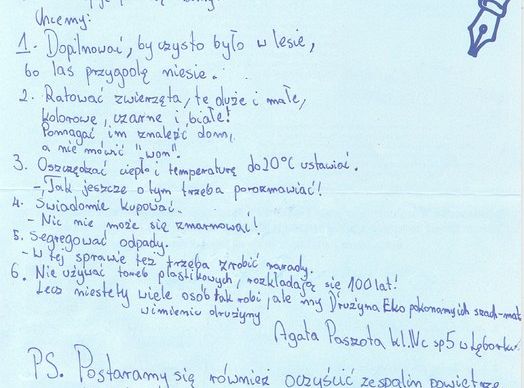 Chcemy:
1. Dopilnować, by czysto było w lesie,
bo las przygodę niesie.
2. Ratować zwierzęta, te duże i małe,
kolorowe, czarne i białe!
Pomagać im znaleźć dom,
a nie mówić "won".
3. Oszczędzać ciepło i temperaturę do 20°C ustawiać.
- Jak jeszcze o tym trzeba porozmawiać!
4. Świadomie kupować.
- Nic nie może się zmarnować!
5. Segregować odpady.
- W tej sprawie też trzeba zrobić narady.
6. Nie używać toreb plastikowych, rozkładają się 100 lat!
Lecz niestety wiele osób tak robi, ale my Drużyna Eko pokonamy ich szach-mat
w imieniu drużyny
Agata Paszota kl. IVc sp5 w Lęborku.
PS. Postaramy się również oczyścić ze spalin powietrze